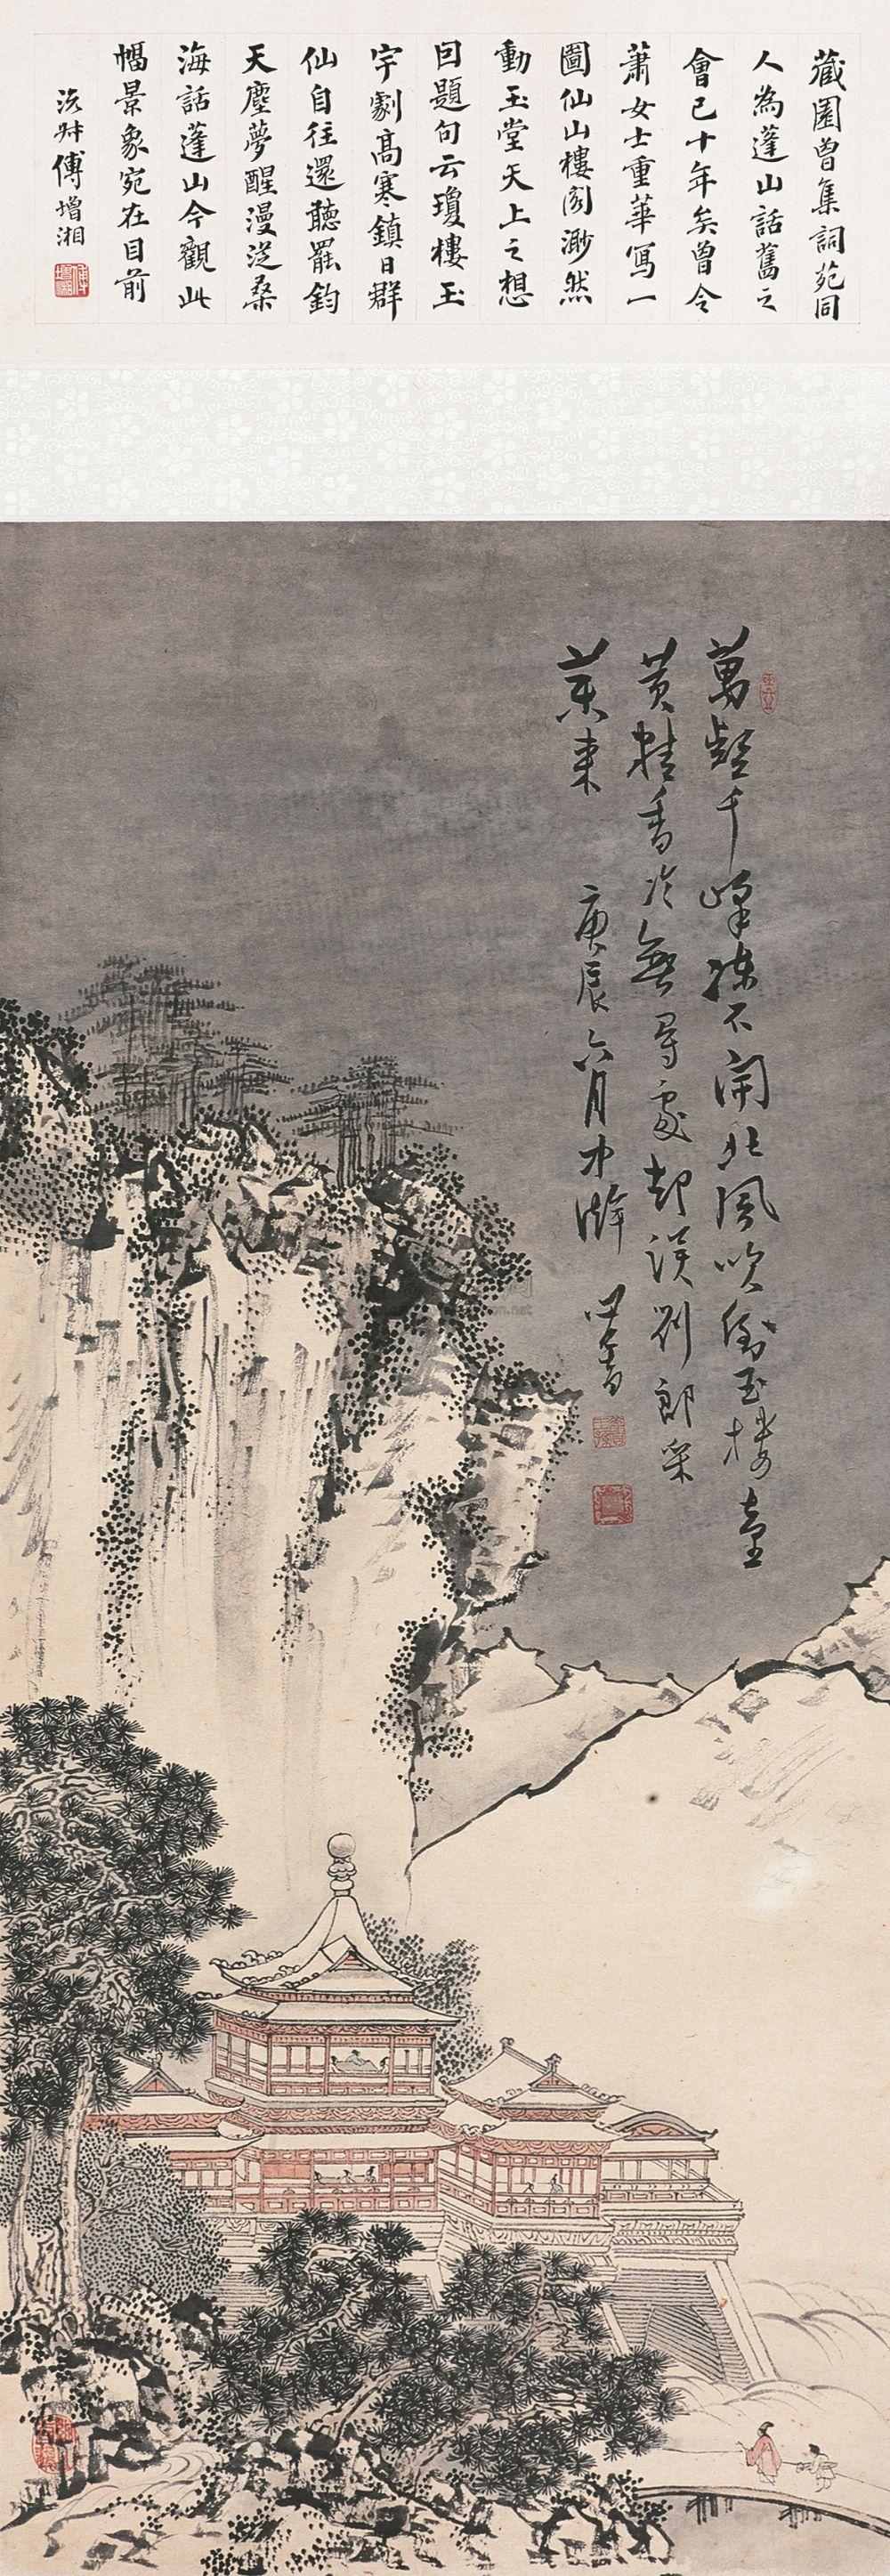 藏園曾集詞苑同
人為蓬山話舊之
會已十年矣曾令
蕭女士重華寫一
圖仙山樓閣渺然
動玉堂天上之想
因題句云瓊樓玉
宇劇高寒鎮日群
仙自往還聽罷鈞
天塵夢醒漫從桑
海話蓬山今觀此
幅景象宛在目前
沅叔傅增湘
萬壑千峰凍不開北風吹倒玉樓臺
黃精香冷無尋處却誤劉郎采
藥來
庚辰六月中澣
心畬